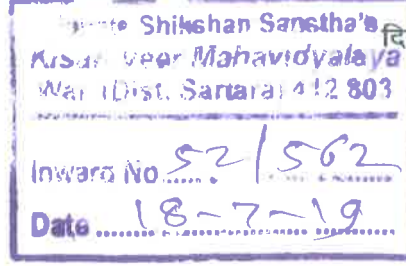 Shikshan Sanstha's
Kisan Veer Mahavidyalaya
Wai (Dist. Satara) 412 803
Inward No. 52/562
Date 18-7-19
दि